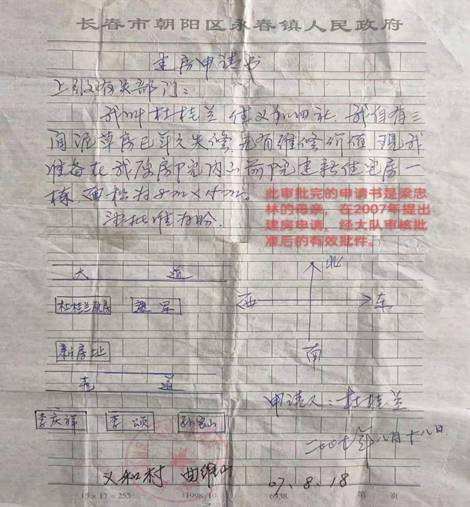 长春市朝阳区永春镇人民政府
建房申请书
上级有关部门：
我叫杜桂兰 住义和四社 我自有三
间泥草房已年久失修 无有维修价值 现我
准备在我 房 院内 前院建新住宅房一
栋 面积为8m×4m.
批准为盼.
此审批完的申请书是梁忠
林的母亲，在2007年提出
建房申请，经大队审核批
准后的有效批件。
大 道
北
杜桂兰
西
东
新房址
南
道
申请人：杜桂兰
李庆祥
李 颂
孙 山
二00七年八月十八日
义和村
07.8.18
15×17=255
页